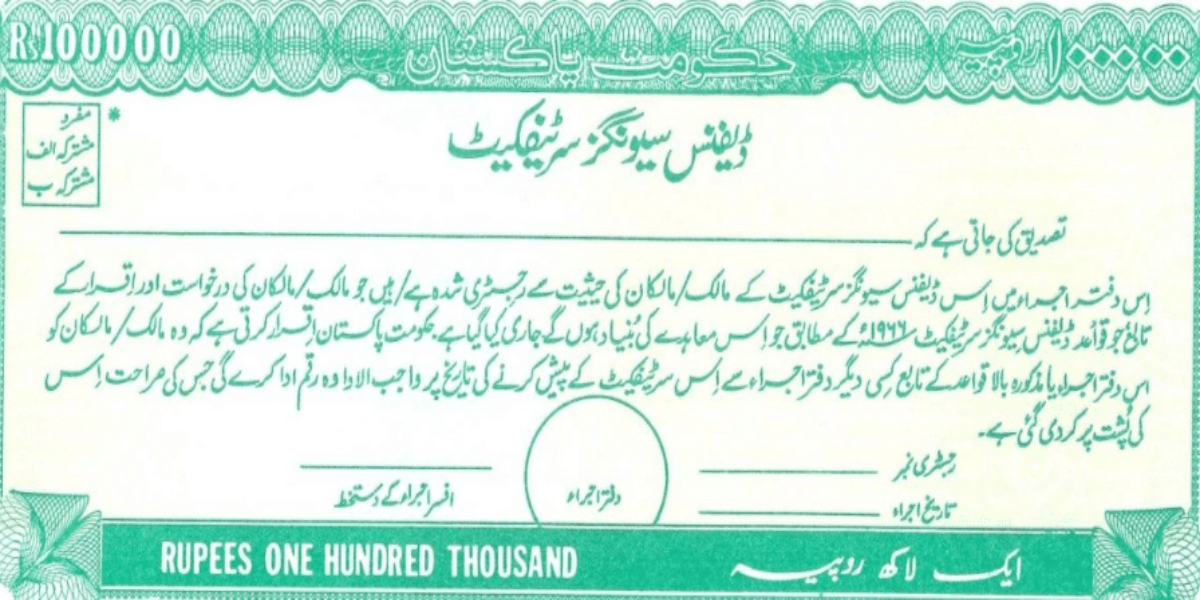 Rs100000
حکومت پاکستان
۱۰۰۰۰۰ روپیہ
* مفرد
مشترکہ الف
مشترکہ ب
ڈیفنس سیونگز سرٹیفکیٹ
تصدیق کی جاتی ہے کہ
اِس دفتر اجراء میں اِس ڈیفنس سیونگز سرٹیفکیٹ کے مالک/مالکان کی حیثیت سے رجسٹری شدہ ہے/ہیں جو مالک/مالکان کی درخواست اور اِقرار کے
تابع جو قواعد ڈیفنس سیونگز سرٹیفکیٹ ۱۹۶۶ء کے مطابق جو اِس معاہدے کی بُنیاد ہوں گے جاری کیا گیا ہے حکومت پاکستان اِقرار کرتی ہے کہ وہ مالک/مالکان کو
اس دفتر اجراء یا مذکورہ بالا قواعد کے تابع کسی دیگر دفتر اجراء سے اِس سرٹیفکیٹ کے پیش کرنے کی تاریخ پر واجب الادا وہ رقم ادا کرے گی جس کی صراحت اِس
کی پُشت پر کردی گئی ہے۔
رجسٹری نمبر
تاریخ اجراء
دفتر اجراء
افسر اجراء کے دستخط
RUPEES ONE HUNDRED THOUSAND
ایک لاکھ روپیہ